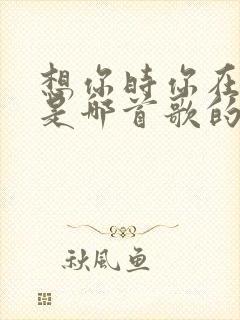 想你时你在
是哪首歌的
秋風魚